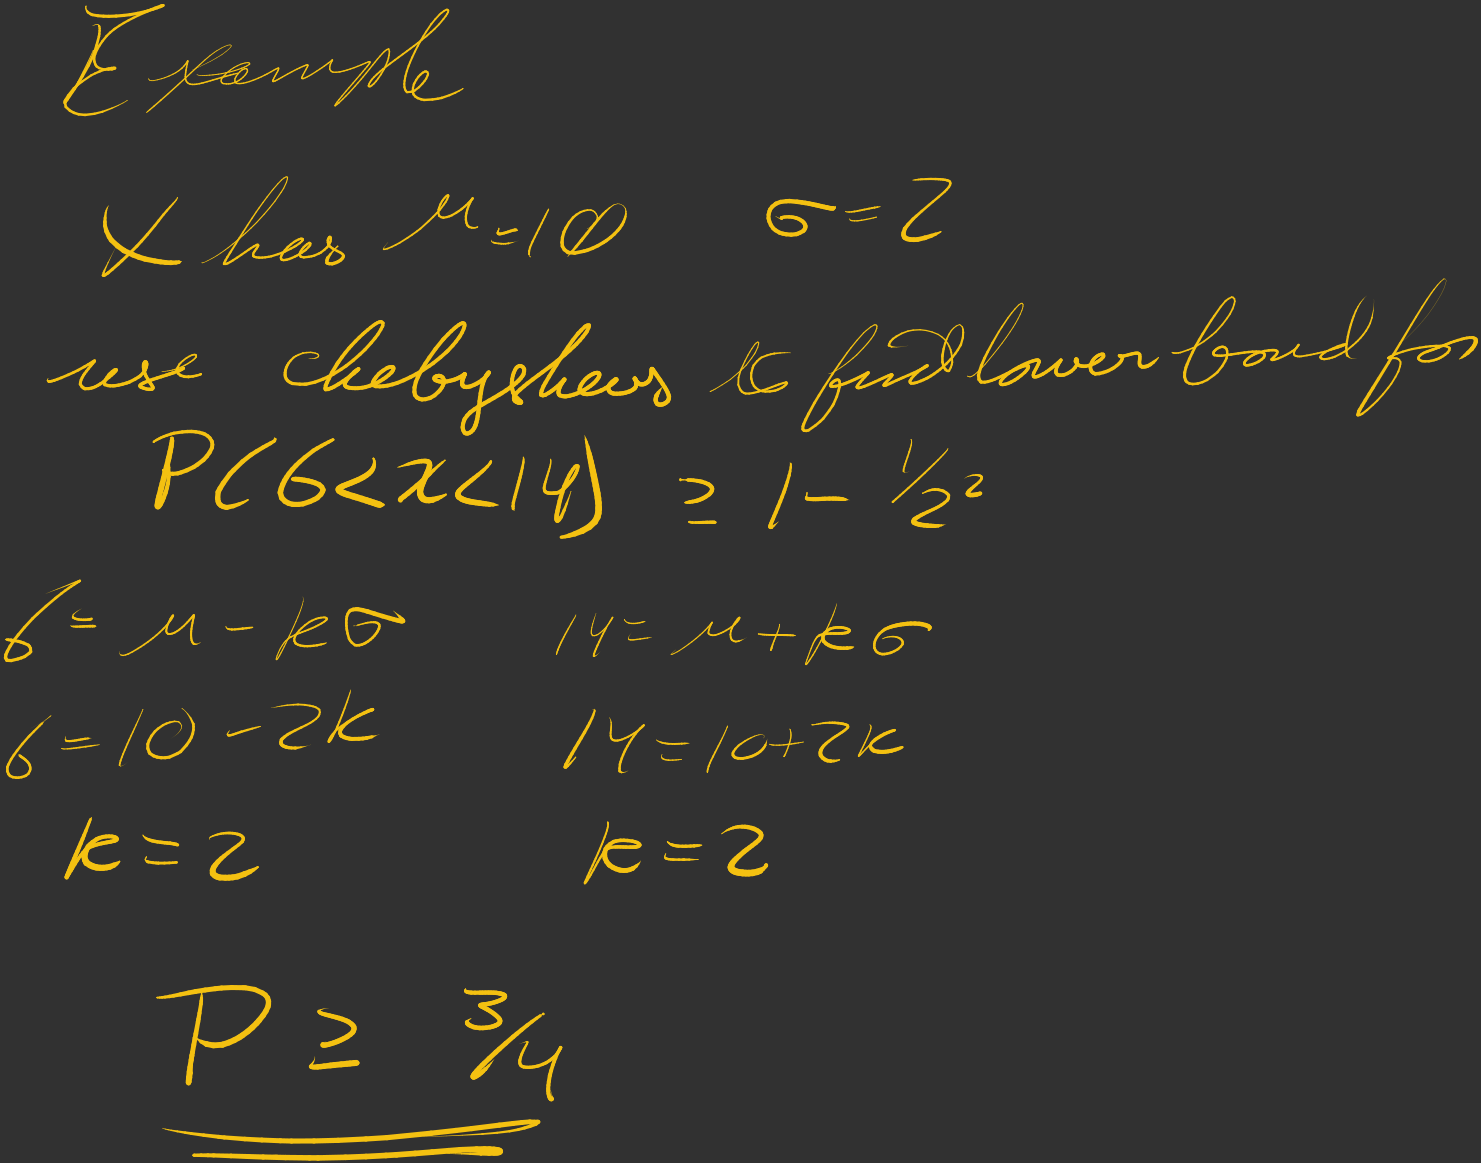 Example
X has μ=10 σ=2
use chebyshevs to find lower bound for
P(6<x<14) ≥ 1 - 1/2²
6 = μ - kσ 14 = μ + kσ
6 = 10 - 2k 14 = 10 + 2k
k = 2 k = 2
P ≥ 3/4